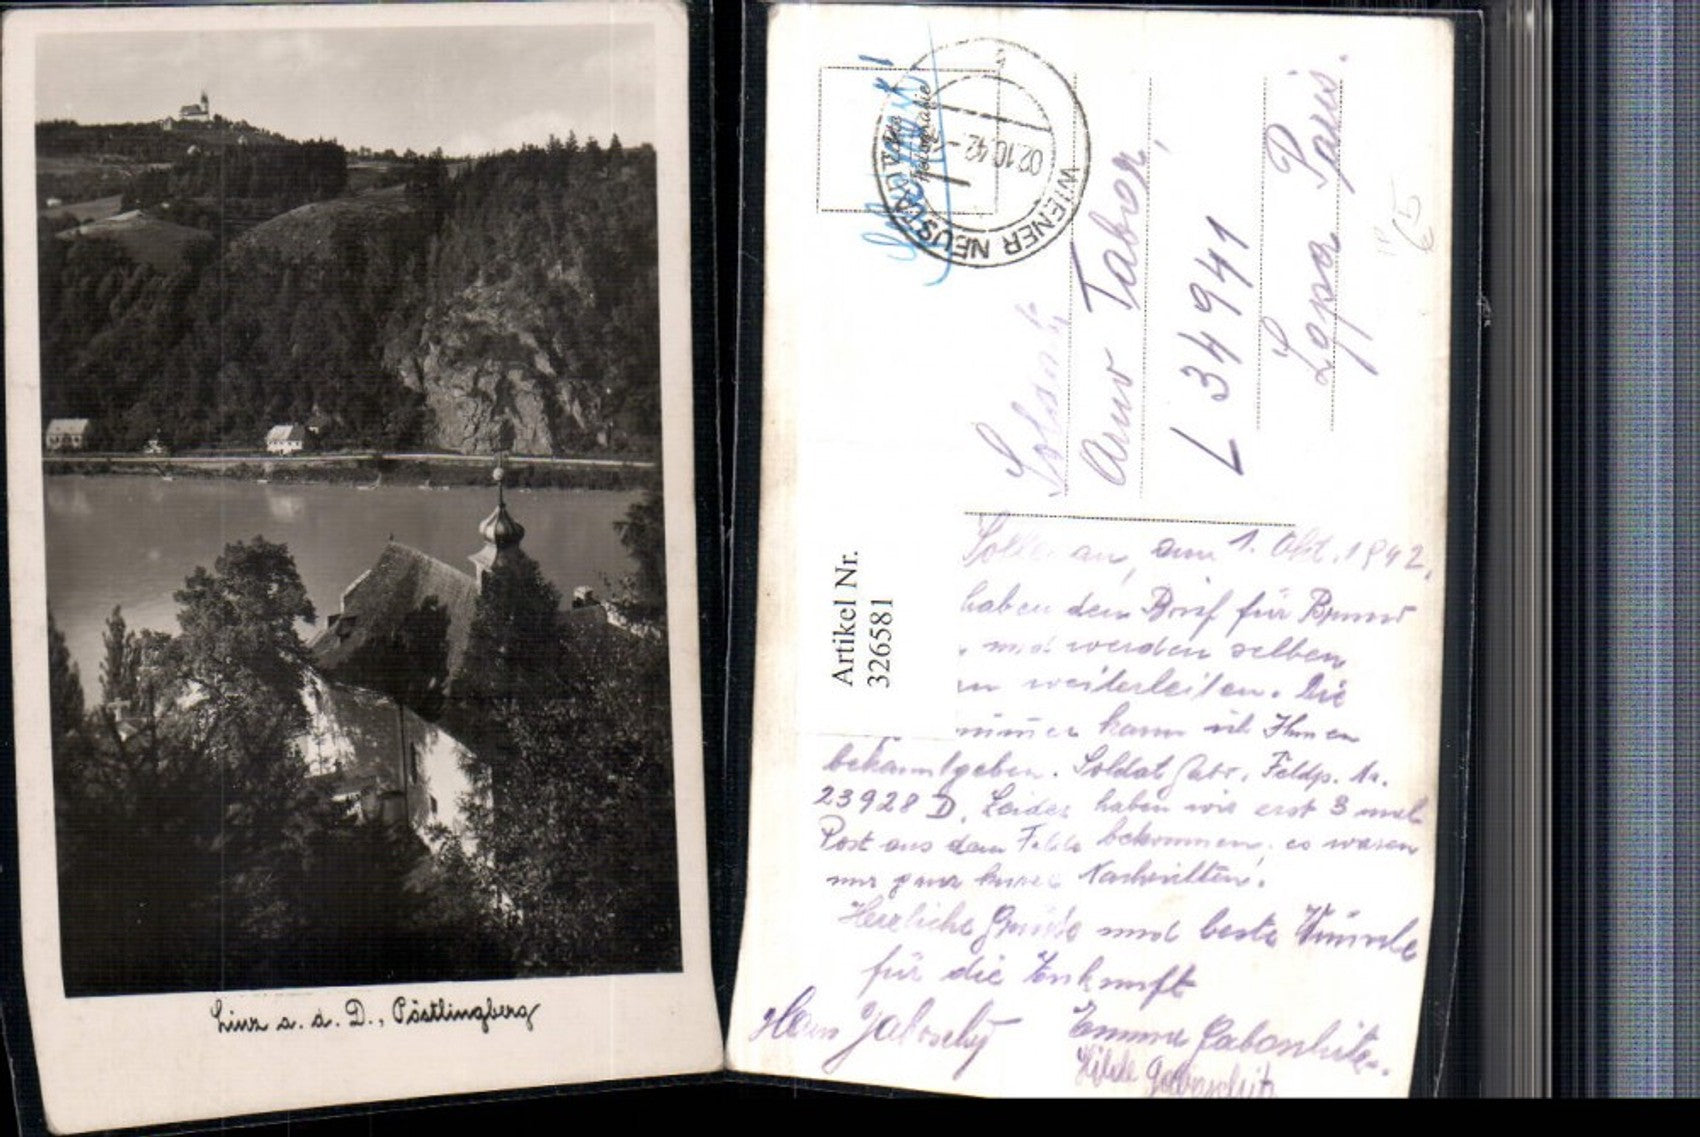 Linz a. d. D., Pöstlingberg
WIENER NEUSTADT
02.10.42
Soldat
Arno Tabor,
L 34941
Lgpa Paris.
65
Artikel Nr.
326581
an, am 1. Okt. 1942.
haben den Brief für Bruno
und werden selben
weiterleiten. Die
kann ich Ihnen
bekanntgeben. Soldat Feldp. Nr.
23928 D. Leider haben wir erst 3 mal
Post aus dem Felde bekommen, es waren
nur ganz kurze Nachrichten.
Herzliche Grüße und beste Wünsche
für die Zukunft
Emma
Hilde